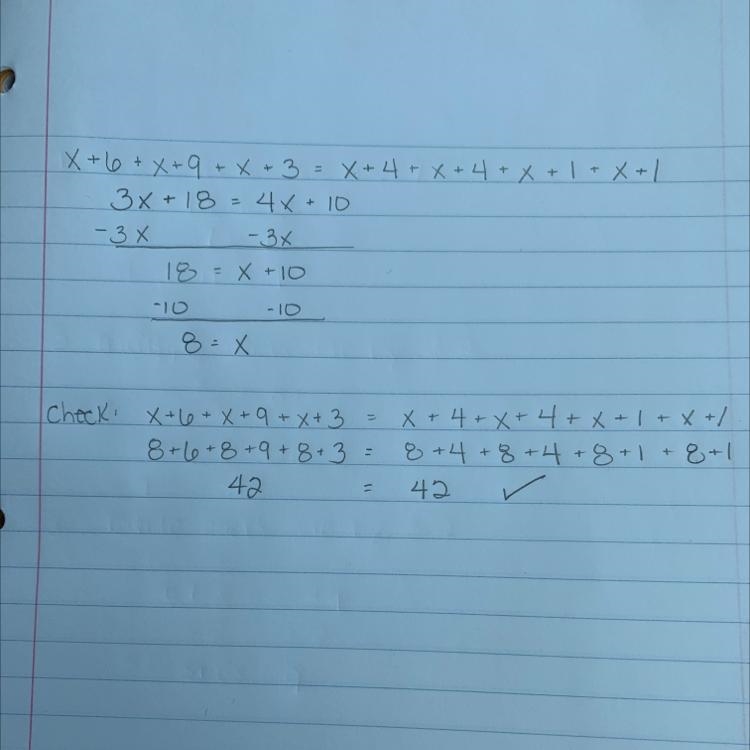 x+6 + x+9 + x + 3 = x+4 + x+4 + x + 1 + x+1
3x + 18 = 4x + 10
-3x -3x
18 = x +10
-10 -10
8 = x
Check: x+6 + x+9 + x+3 = x + 4 + x + 4 + x + 1 + x +1
8+6+8+9+8+3 = 8 +4 + 8 +4 + 8+1 + 8+1
42 = 42 ✓